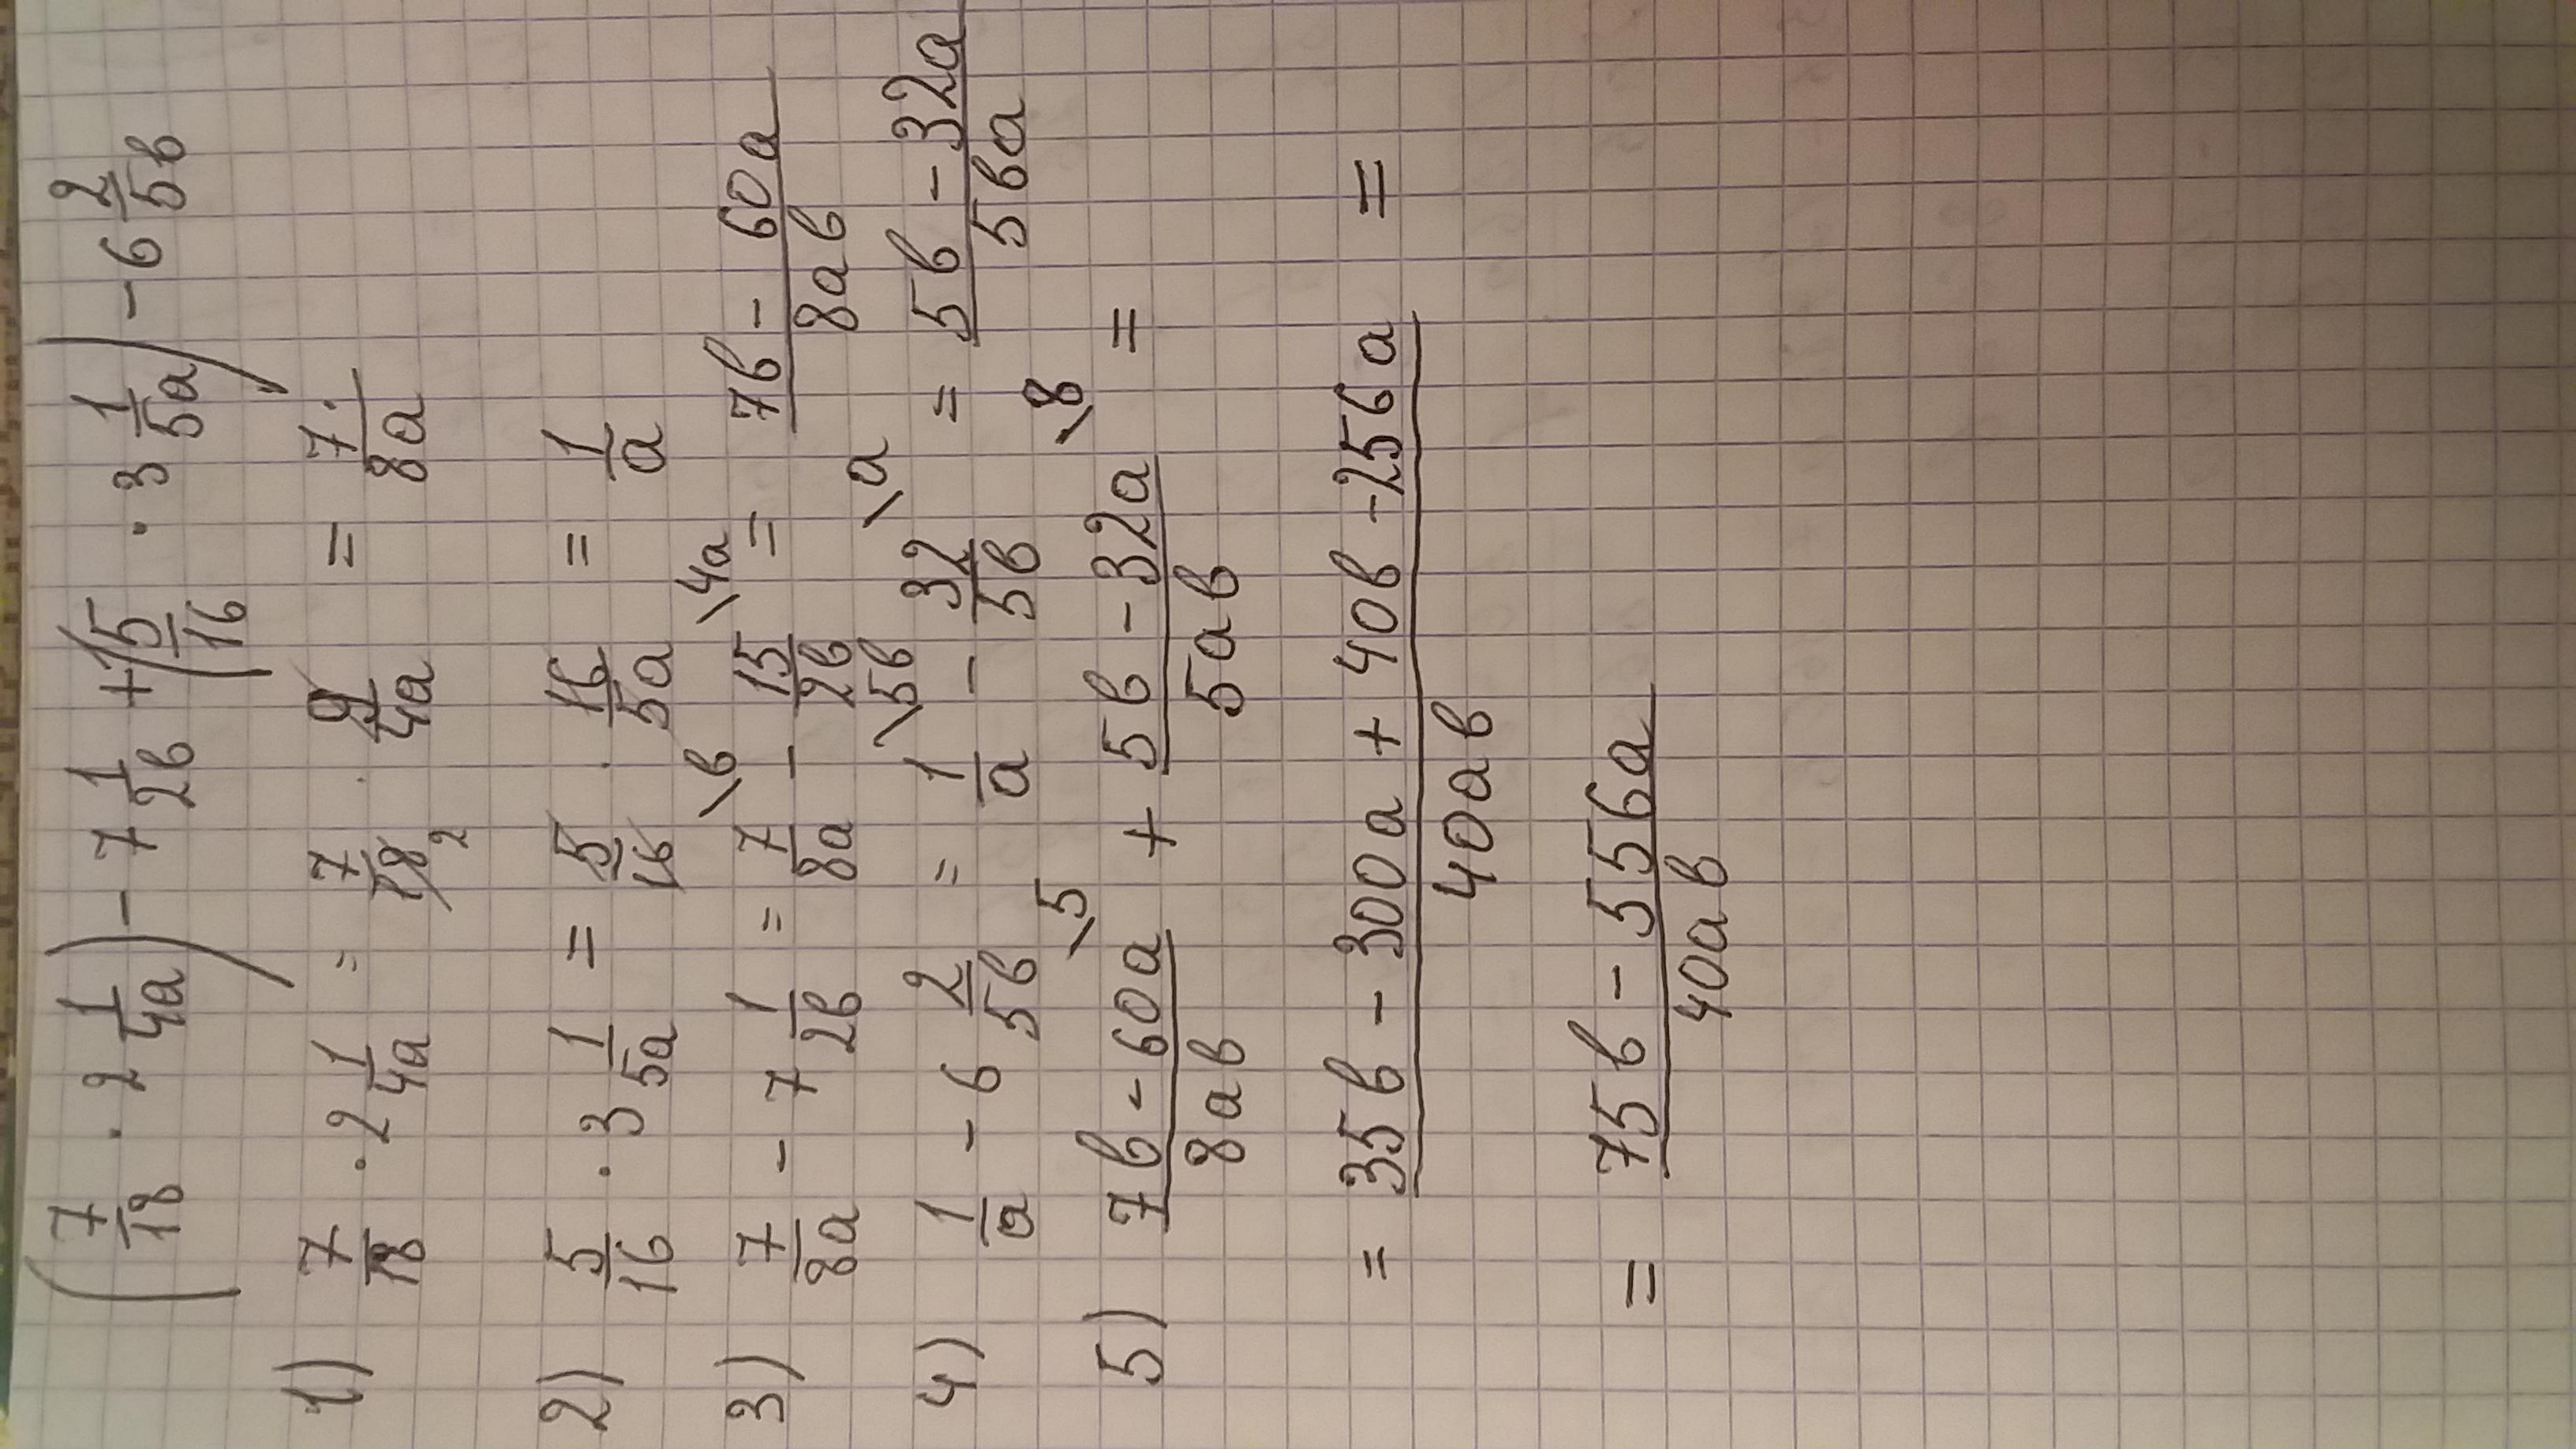 (7/18 · 2 1/4a) - 7 1/2в + (5/16 · 3 1/5a) - 6 2/5в
1) 7/18 · 2 1/4a = 7/18 2 · 9/4a = 7/8a
2) 5/16 · 3 1/5a = 5/16 · 16/5a = 1/a
3) 7/8a - 7 1/2в = 7/8a \в - 15/2в \4a = 7в - 60a/8aв
4) 1/a - 6 2/5в = 1/a \5в - 32/5в \a = 5в - 32a/5вa
5) 7в - 60a/8aв \5 + 5в - 32a/5aв \8 =
= 35в - 300a + 40в - 256a/40aв =
= 75в - 556a/40aв